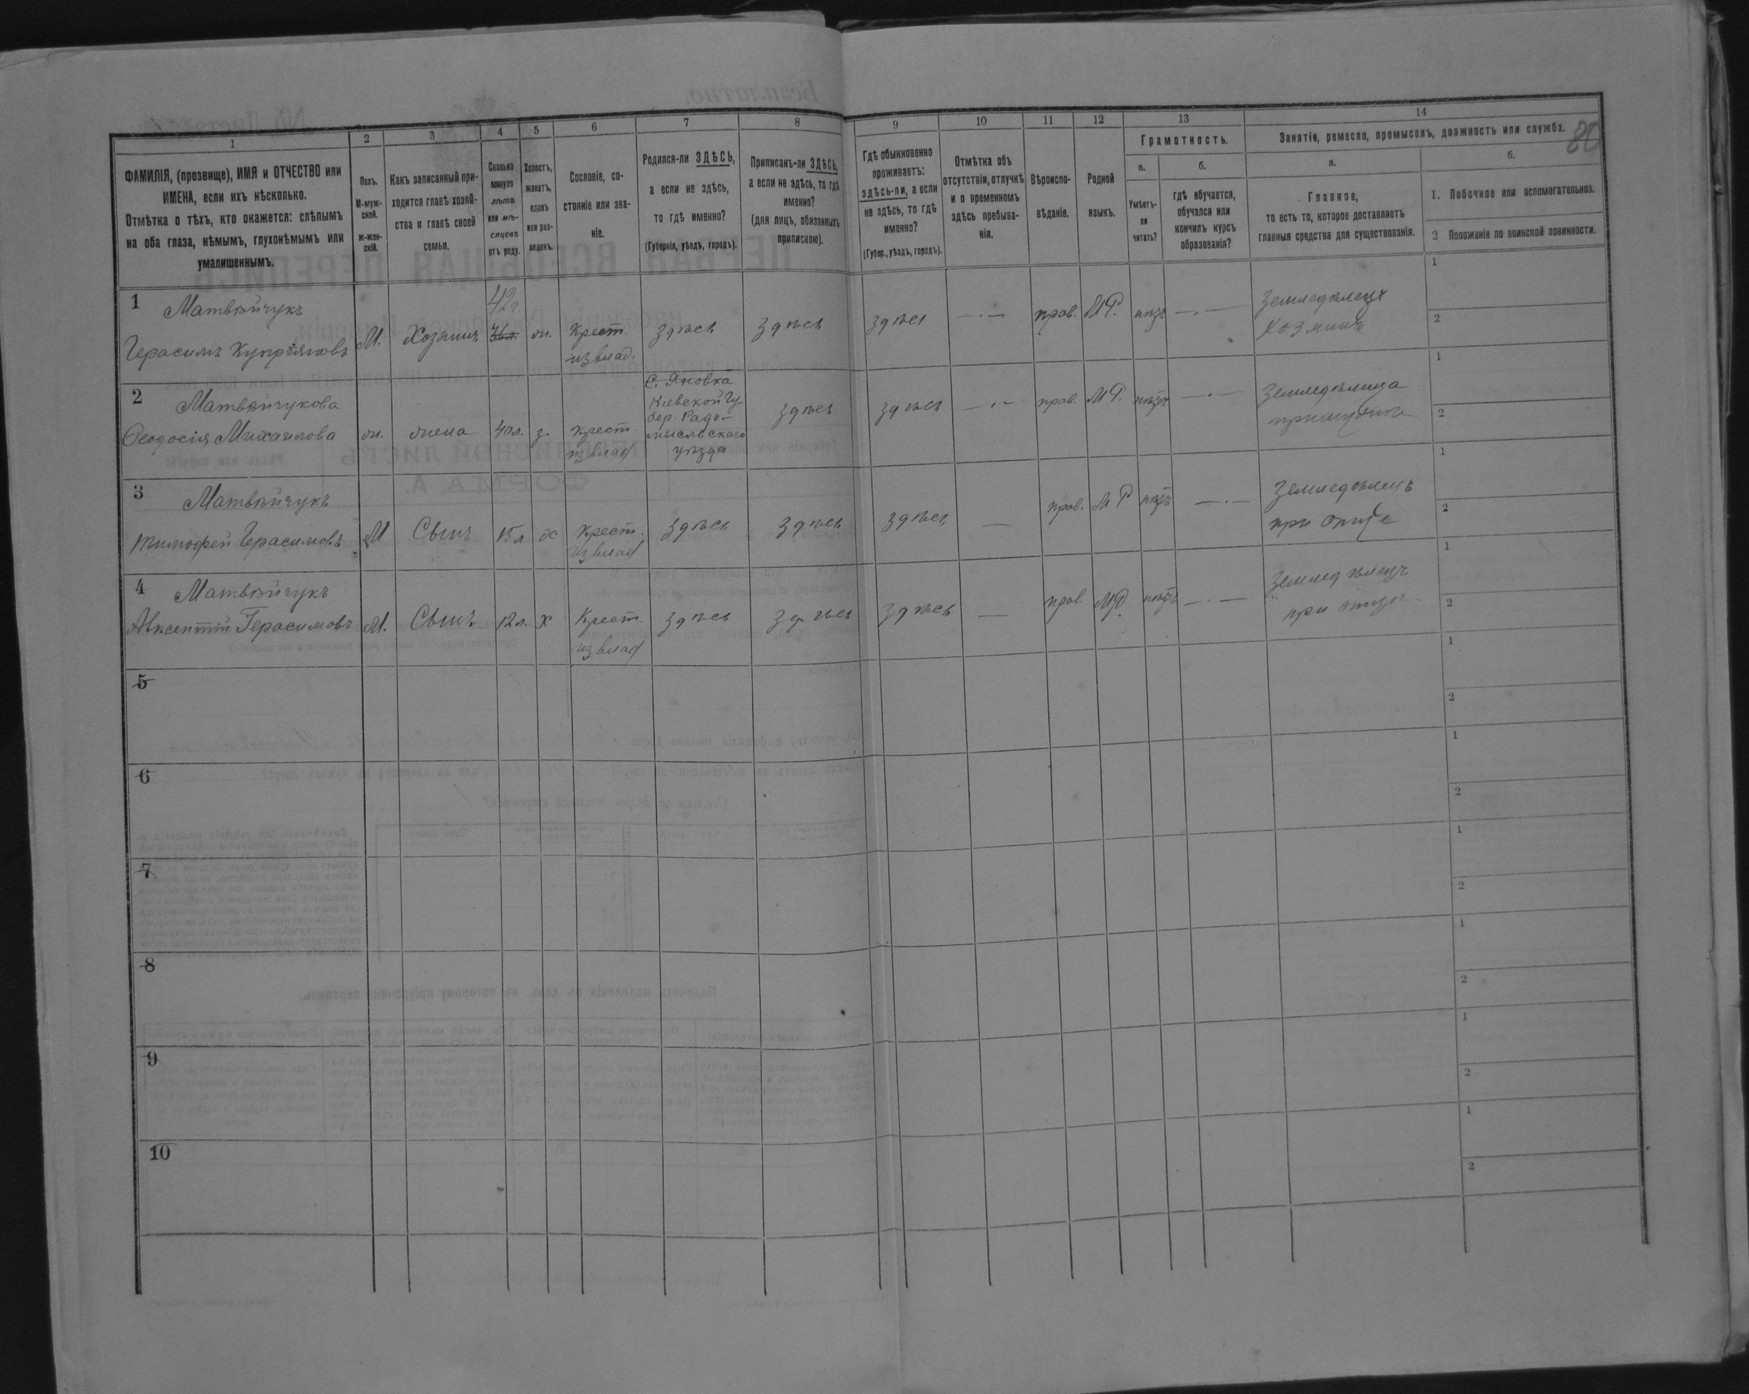 1
2
3
4
5
6
7
8
9
10
11
12
13
14
ФАМИЛІЯ, (прозвище), ИМЯ и ОТЧЕСТВО или
ИМЕНА, если ихъ нѣсколько.
Отмѣтка о тѣхъ, кто окажется: слѣпымъ
на оба глаза, нѣмымъ, глухонѣмымъ или
умалишеннымъ.
Полъ.
М-муж-
ской.
Ж-жен-
скій.
Какъ записанный при-
ходится главѣ хозяй-
ства и главѣ своей
семьи.
Сколько
минуло
лѣтъ
или мѣ-
сяцевъ
отъ роду.
Холостъ,
женатъ,
вдовъ
или раз-
веденъ.
Сословіе, со-
стояніе или зва-
ніе.
Родился-ли ЗДѢСЬ,
а если не здѣсь,
то гдѣ именно?
(Губернія, уѣздъ, городъ).
Приписанъ-ли ЗДѢСЬ,
а если не здѣсь, то гдѣ
именно?
(для лицъ, обязанныхъ
припискою).
Гдѣ обыкновенно
проживаетъ:
здѣсь-ли, а если
не здѣсь, то гдѣ
именно?
(Губер., уѣздъ, городъ).
Отмѣтка объ
отсутствіи, отлучкѣ
и о временномъ
здѣсь пребыва-
ніи.
Вѣроиспо-
вѣданіе.
Родной
языкъ.
Грамотность.
а.
Умѣетъ-
ли
читать?
б.
гдѣ обучается,
обучался или
кончилъ курсъ
образованія?
Занятіе, ремесло, промыселъ, должность или служба.
а.
Главное,
то есть то, которое доставляетъ
главныя средства для существованія.
б.
1. Побочное или вспомогательное.
2 Положеніе по воинской повинности.
1 Матвѣйчукъ
Герасимъ Купріяновъ М. Хозяинъ 42г. ж. Крест. из влад. здѣсь здѣсь здѣсь — · — прав. М.Р. нѣтъ — · — Земледѣлецъ
Хозяинъ
1
2
2 Матвѣйчукова
Ѳеодосія Михаилова ж. жена 40л. з. крест из влад
С. Яновка
Кіевской Гу
бер. Радо-
мысльскаго
уѣзда
здѣсь здѣсь — · — прав. М.Р. нѣтъ — · — Земледѣлица
1
2
3 Матвѣйчукъ
Тимофей Герасимовъ М Сынъ 15л х Крест. из влад здѣсь здѣсь здѣсь — прав. М Р нѣтъ — · — Земледѣлецъ
при отцѣ
1
2
4 Матвѣйчукъ
Авксентій Герасимовъ М. Сынъ 12л. х Крест. из влад здѣсь здѣсь здѣсь — прав. М.Р. нѣтъ — · — Земледѣлецъ
при отцѣ
1
2
5
1
2
6
1
2
7
1
2
8
1
2
9
1
2
10
1
2